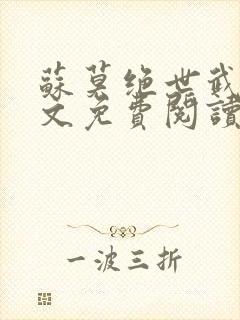 蘇莫绝世武
文免費閱讀
一波三折